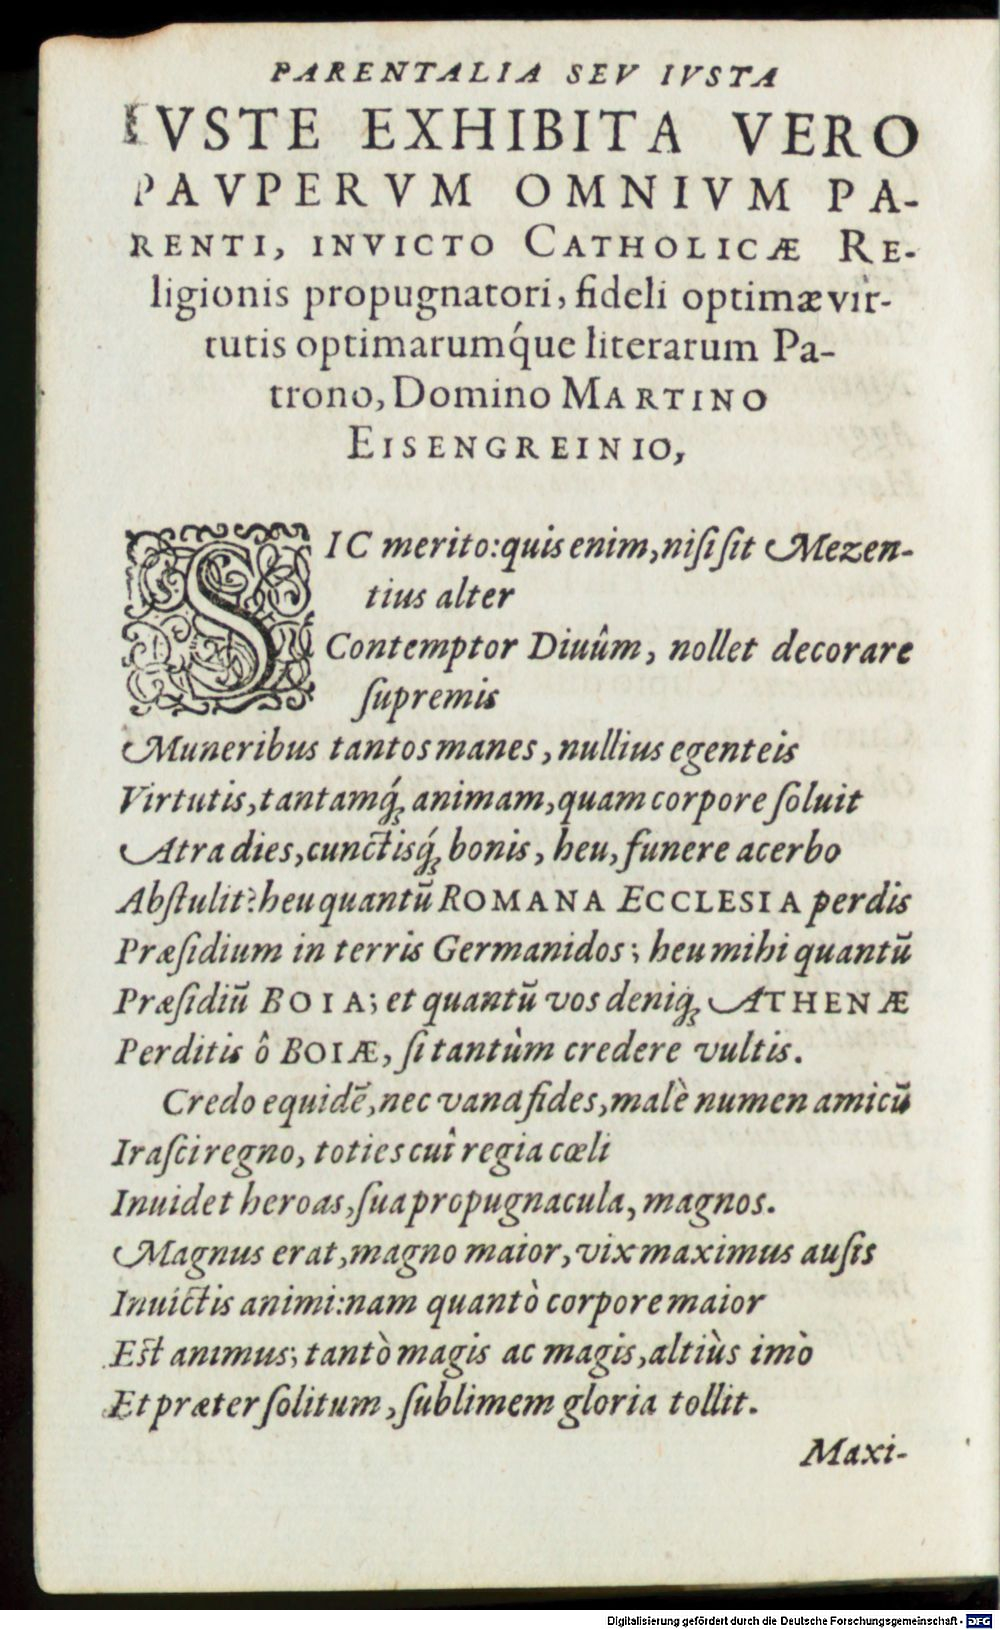 PARENTALIA SEV IVSTA
IVSTE EXHIBITA VERO
PAVPERVM OMNIVM PA-
RENTI, INVICTO CATHOLICÆ RE-
ligionis propugnatori, fideli optimæ vir-
tutis optimarumq́ue literarum Pa-
trono, Domino MARTINO
EISENGREINIO,
SIC merito: quis enim, niſi ſit Mezen-
tius alter
Contemptor Diuûm, nollet decorare
ſupremis
Muneribus tantos manes, nullius egenteis
Virtutis, tantamq́ꝫ animam, quam corpore ſoluit
Atra dies, cunctisq́ꝫ bonis, heu, funere acerbo
Abſtulit? heu quantū ROMANA ECCLESIA perdis
Præſidium in terris Germanidos; heu mihi quantū
Præſidiū BOIA; et quantū vos deniqꝫ ATHENÆ
Perditis ô BOIÆ, ſi tantùm credere vultis.
Credo equidē, nec vana fides, malè numen amicū
Iraſci regno, toties cui regia cœli
Inuidet heroas, ſua propugnacula, magnos.
Magnus erat, magno maior, vix maximus auſis
Inuictis animi: nam quantò corpore maior
Est animus; tantò magis ac magis, altiùs imò
Et præter ſolitum, ſublimem gloria tollit.
Maxi-
Digitalisierung gefördert durch die Deutsche Forschungsgemeinschaft - DFG